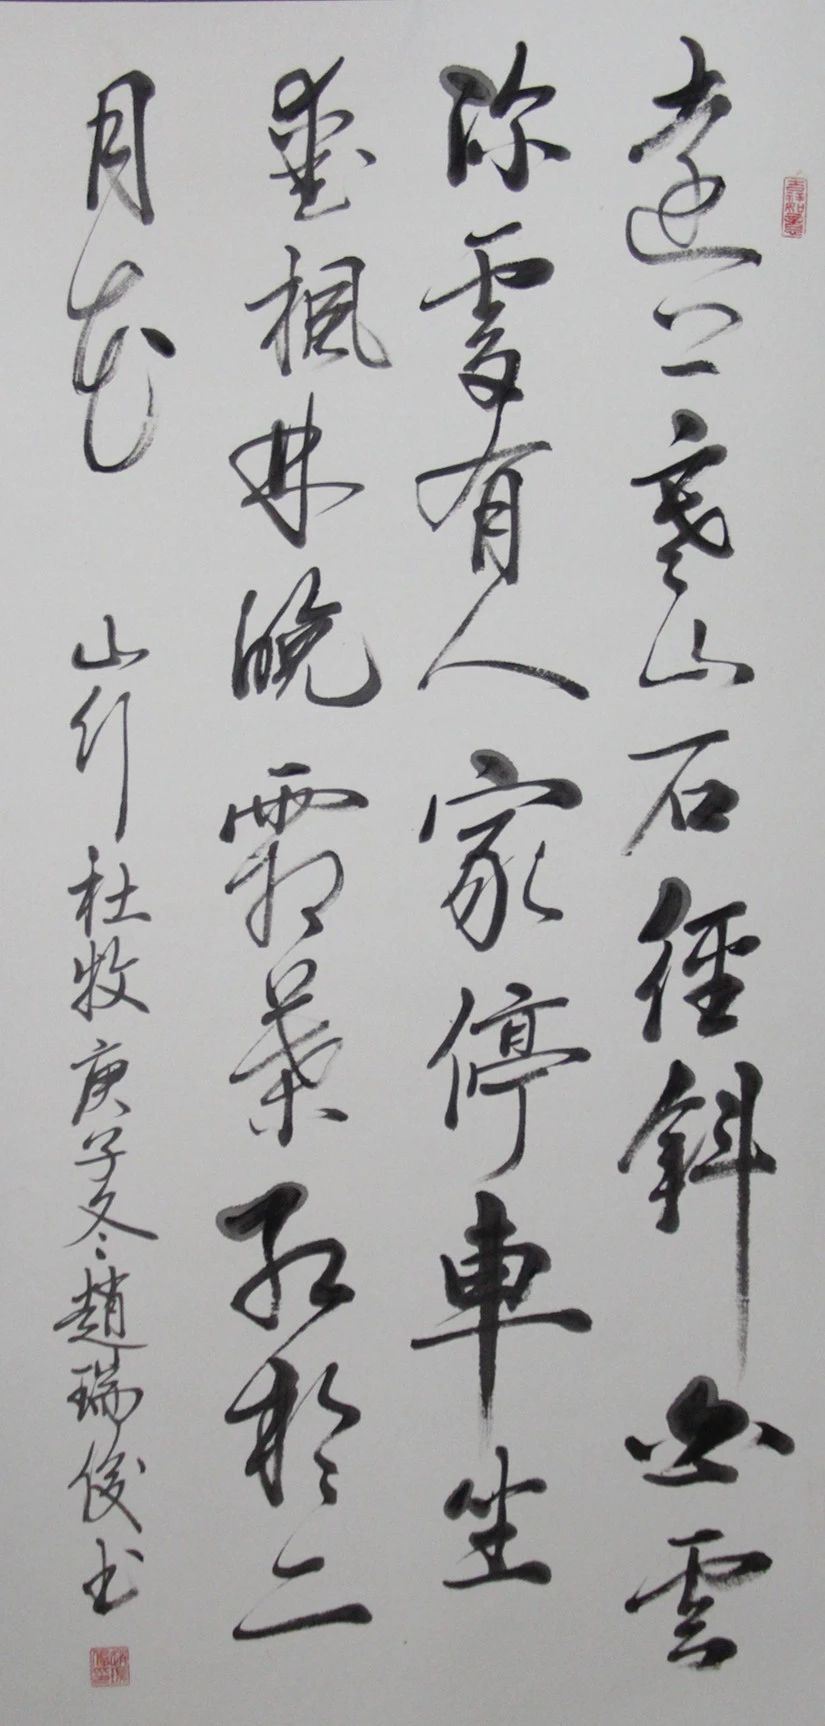 吉祥如意
遠上寒山石徑斜白雲
深處有人家停車坐
愛楓林晚霜葉紅於二
月花
山行杜牧庚子冬趙瑞俊书